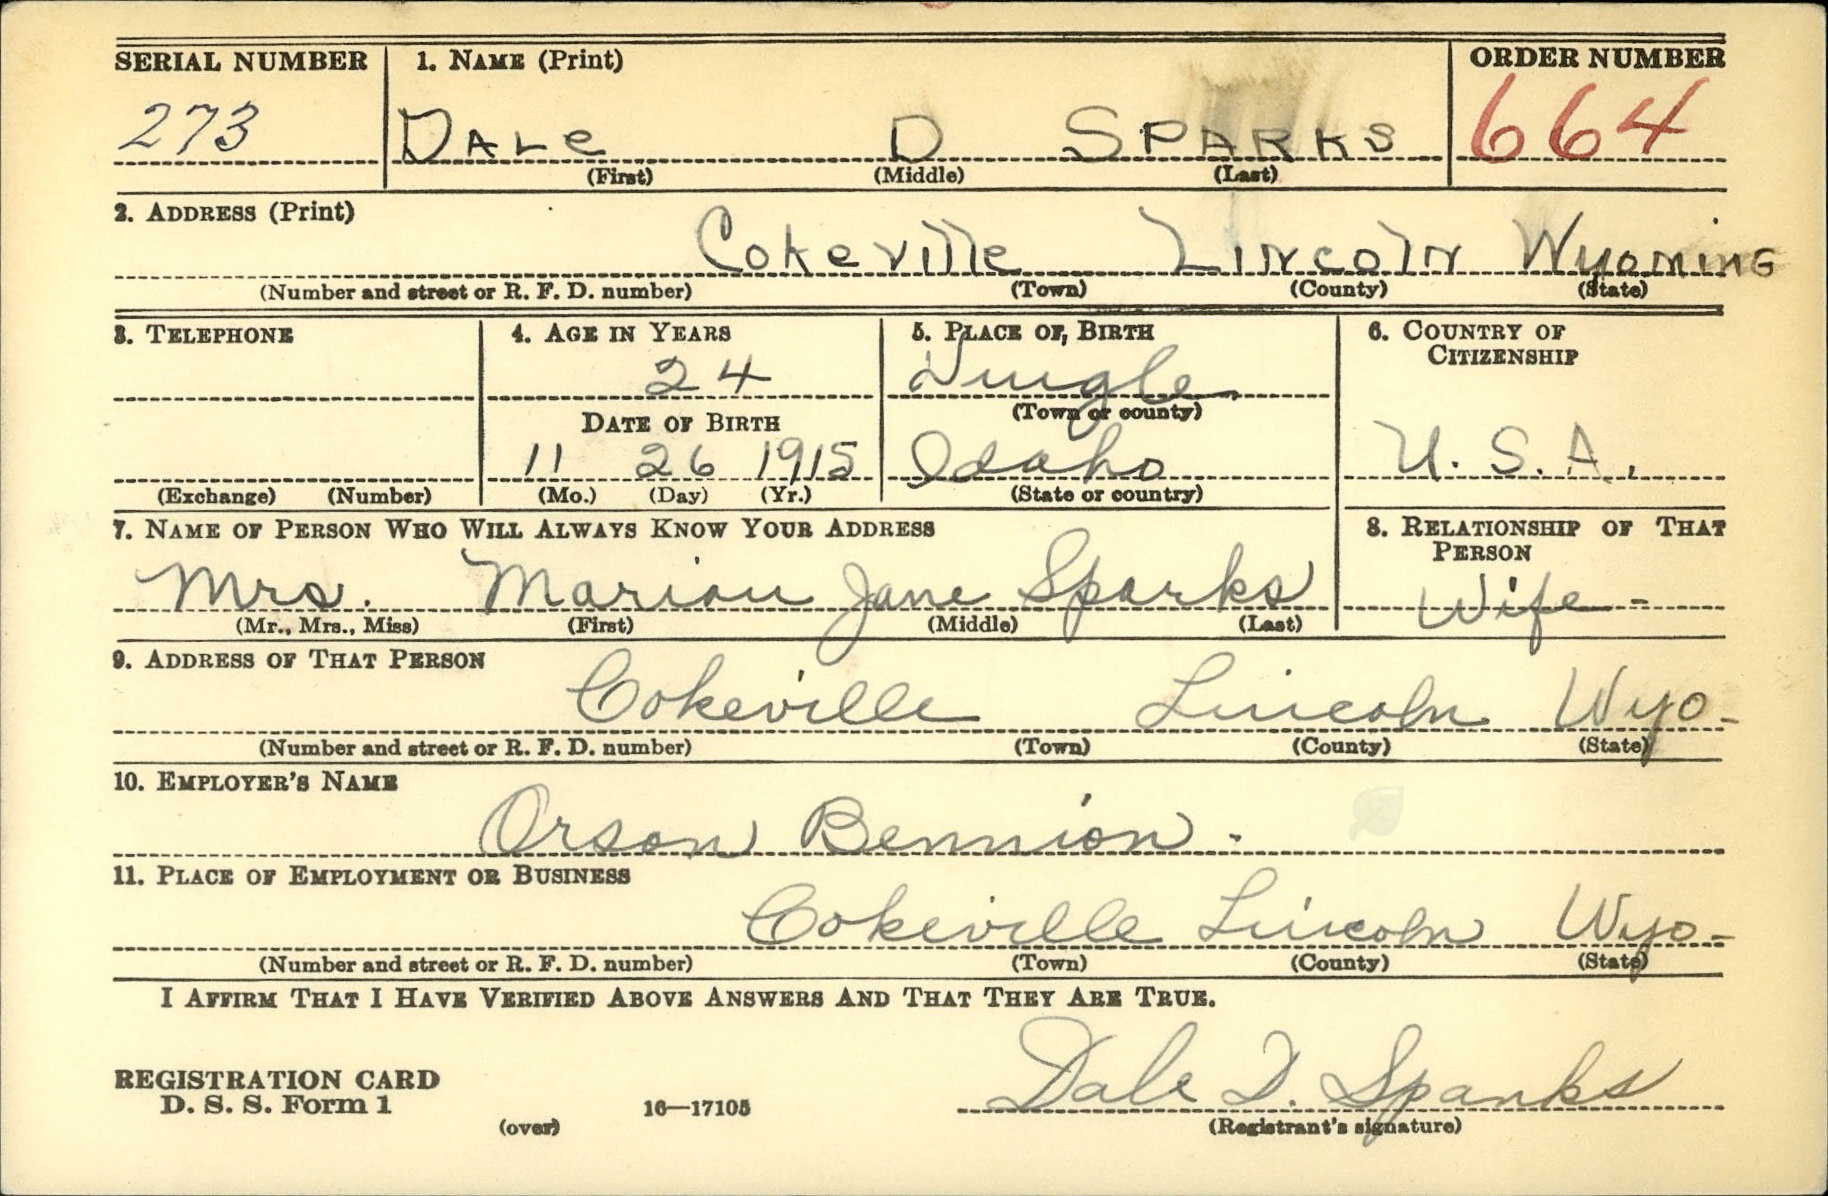 SERIAL NUMBER 1. NAME (Print) ORDER NUMBER
273 DALe D SPARKS 664
(First) (Middle) (Last)
2. ADDRESS (Print)
Cokeville LINcolN WyoMiNG
(Number and street or R. F. D. number) (Town) (County) (State)
3. TELEPHONE 4. AGE IN YEARS 5. PLACE OF BIRTH 6. COUNTRY OF
CITIZENSHIP
24 Dingle
(Town or county)
DATE OF BIRTH
11 26 1915 Idaho U.S.A.
(Exchange) (Number) (Mo.) (Day) (Yr.) (State or country)
7. NAME OF PERSON WHO WILL ALWAYS KNOW YOUR ADDRESS 8. RELATIONSHIP OF THAT
PERSON
Mrs. Marion Jane Sparks Wife -
(Mr., Mrs., Miss) (First) (Middle) (Last)
9. ADDRESS OF THAT PERSON
Cokeville Lincoln Wyo-
(Number and street or R. F. D. number) (Town) (County) (State)
10. EMPLOYER'S NAME
Orson Bennion.
11. PLACE OF EMPLOYMENT OR BUSINESS
Cokeville Lincoln Wyo-
(Number and street or R. F. D. number) (Town) (County) (State)
I AFFIRM THAT I HAVE VERIFIED ABOVE ANSWERS AND THAT THEY ARE TRUE.
Dale D. Sparks
REGISTRATION CARD
D. S. S. Form 1 16—17105
(over) (Registrant's signature)